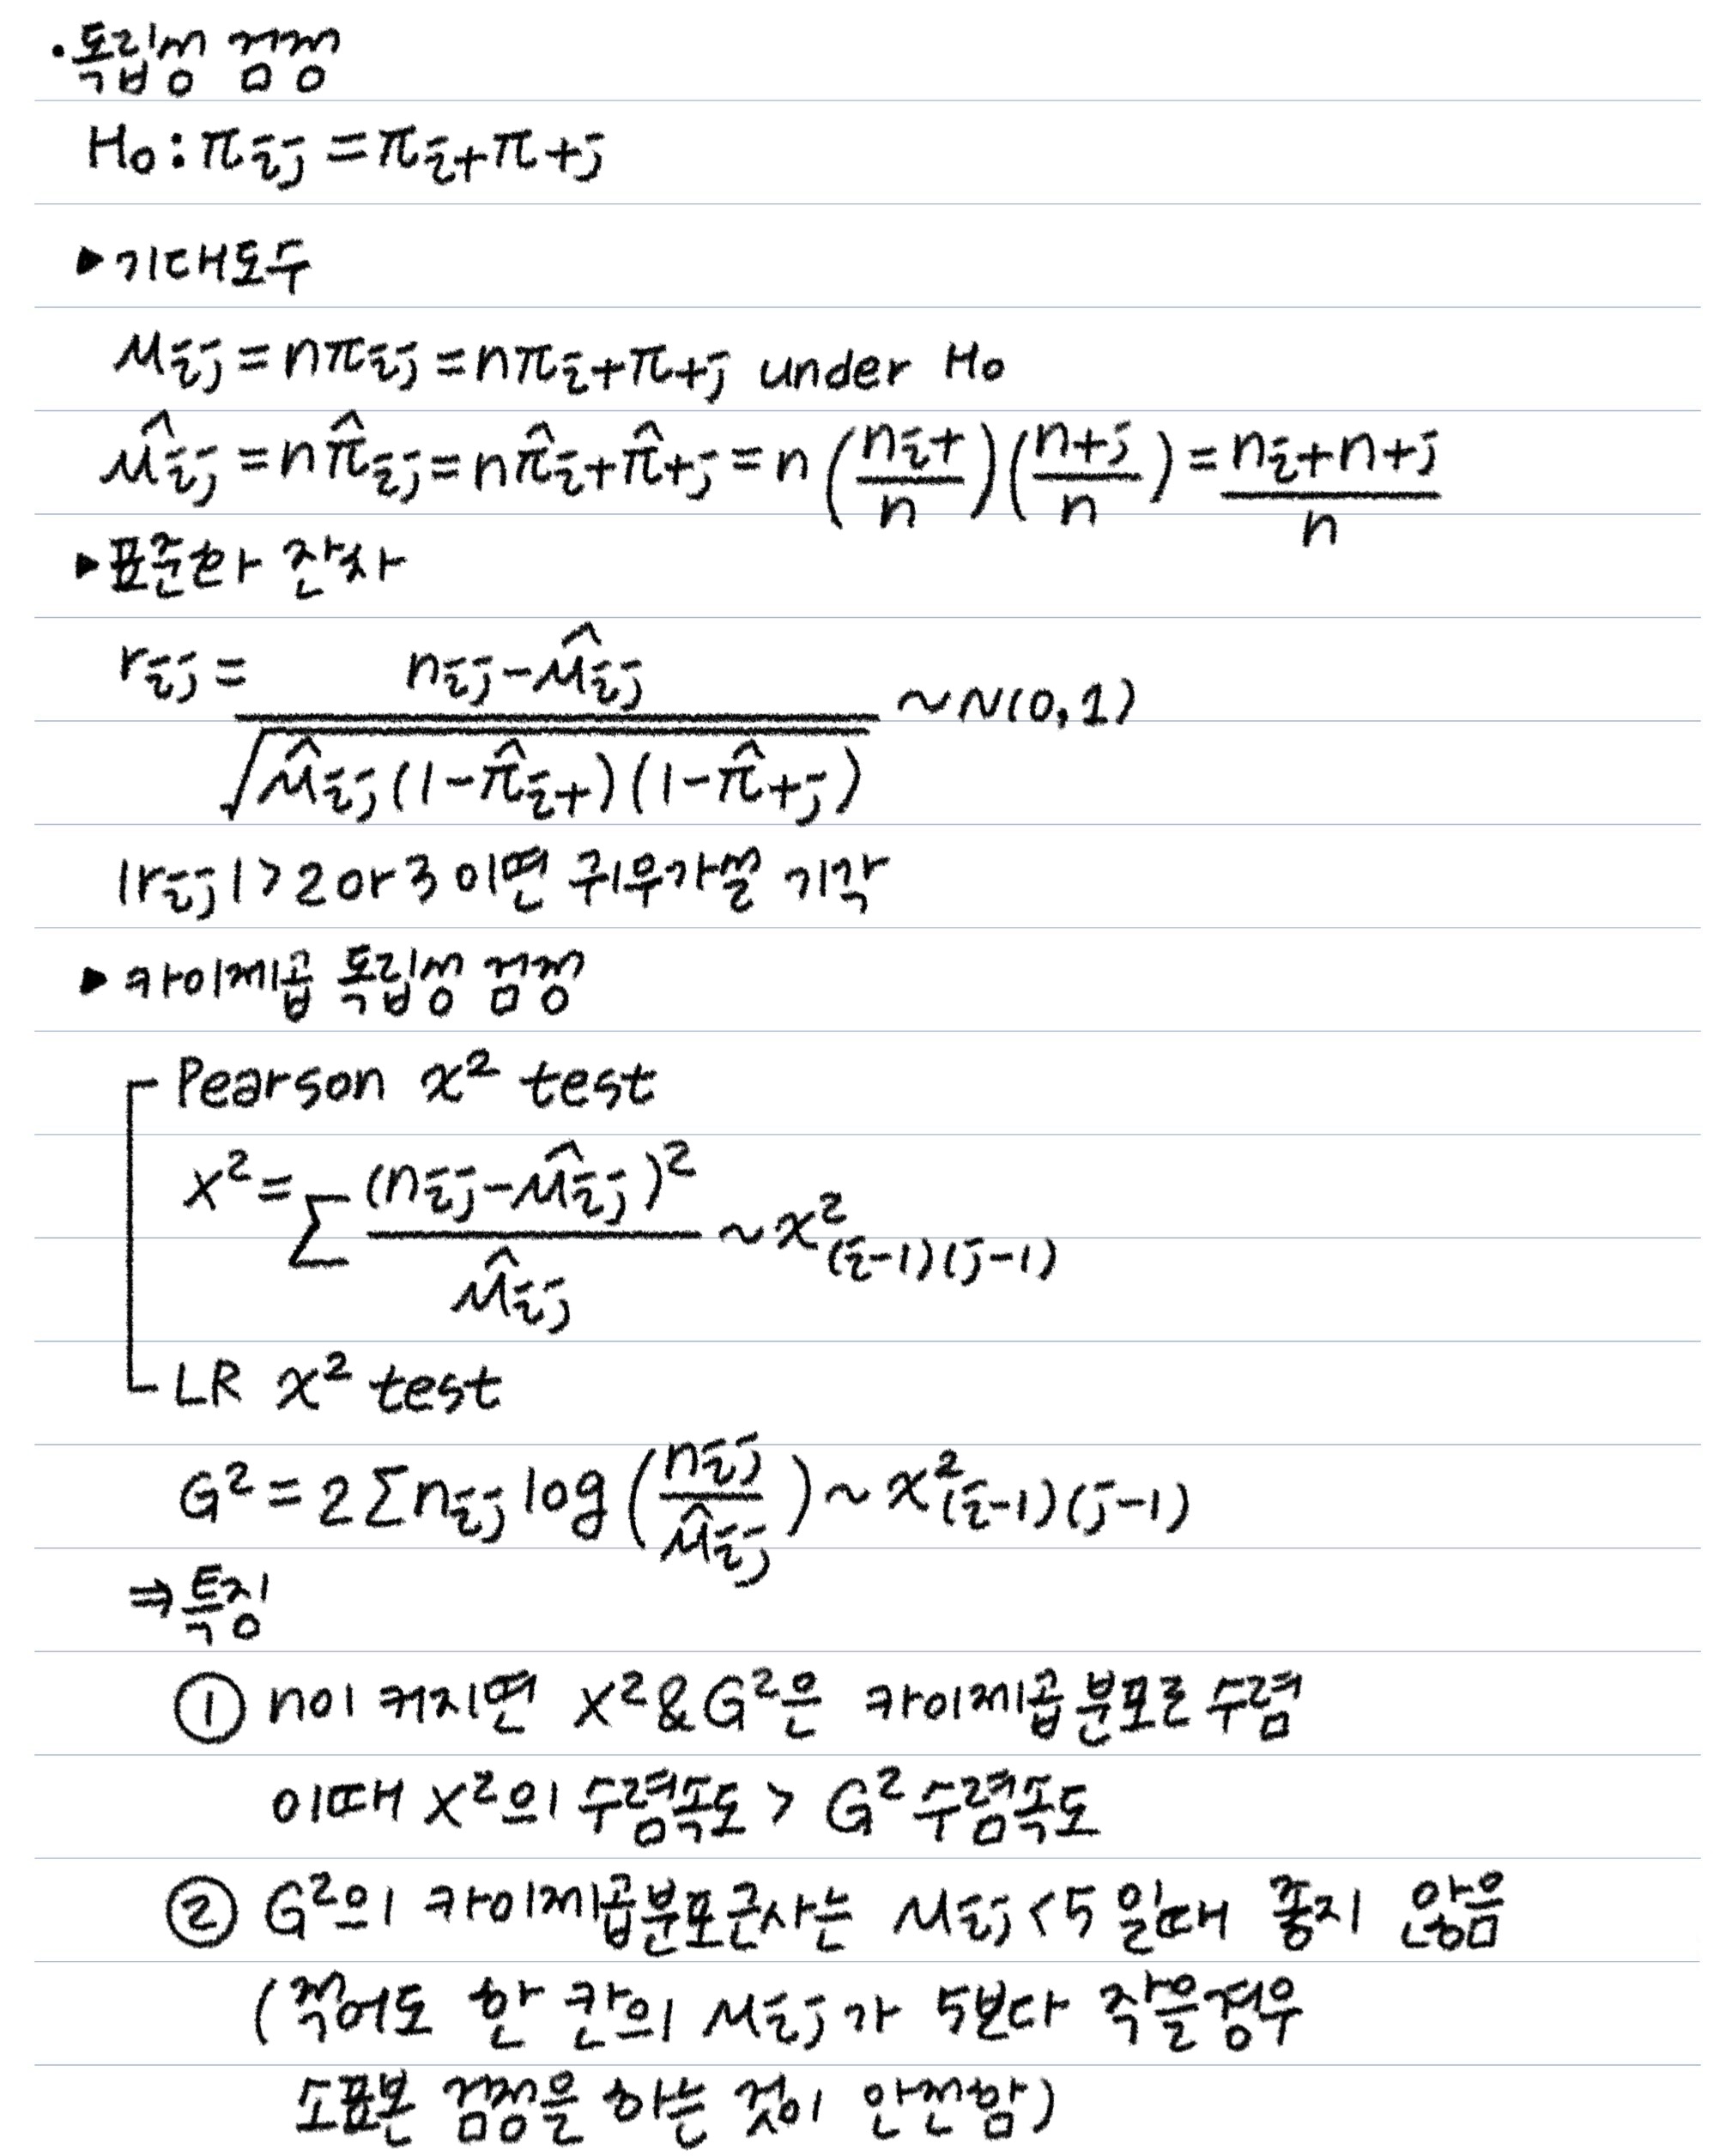 · 독립성 검정
H₀ : πᵢⱼ = πᵢ₊π₊ⱼ
▶ 기대도수
μᵢⱼ = nπᵢⱼ = nπᵢ₊π₊ⱼ under H₀
μ̂ᵢⱼ = nπ̂ᵢⱼ = nπ̂ᵢ₊π̂₊ⱼ = n(nᵢ₊/n)(n₊ⱼ/n) = nᵢ₊n₊ⱼ/n
▶ 표준화 잔차
rᵢⱼ = (nᵢⱼ - μ̂ᵢⱼ)/√(μ̂ᵢⱼ(1-π̂ᵢ₊)(1-π̂₊ⱼ)) ~ N(0,1)
|rᵢⱼ| > 2 or 3 이면 귀무가설 기각
▶ 카이제곱 독립성 검정
Pearson χ² test
X² = Σ (nᵢⱼ - μ̂ᵢⱼ)²/μ̂ᵢⱼ ~ χ²(i-1)(j-1)
LR χ² test
G² = 2Σnᵢⱼ log(nᵢⱼ/μ̂ᵢⱼ) ~ χ²(i-1)(j-1)
⇒ 특징
① n이 커지면 X²&G²은 카이제곱분포로 수렴
이때 X²의 수렴속도 > G² 수렴속도
② G²의 카이제곱분포근사는 μᵢⱼ<5 일때 좋지 않음
(적어도 한 칸의 μᵢⱼ가 5보다 작을경우
소표본 검정을 하는 것이 안전함)